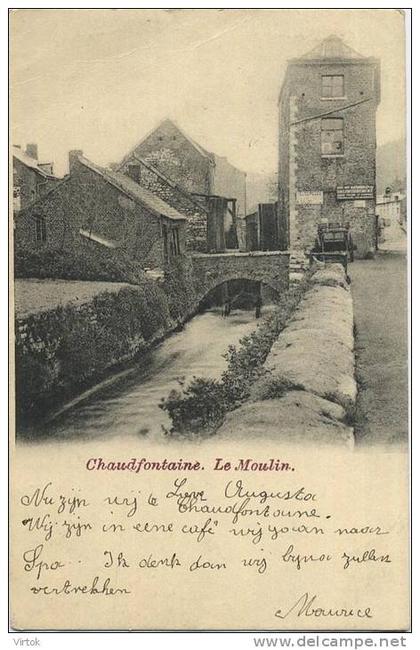 Chaudfontaine. Le Moulin.
Lieve Augusta
Nu zijn wij te Chaudfontaine.
Wij zijn in eene café wij gaan naar
Spa.. Ik denk dan wij bijna zullen
vertrekken
Maurice
Virtok
www.delcampe.net